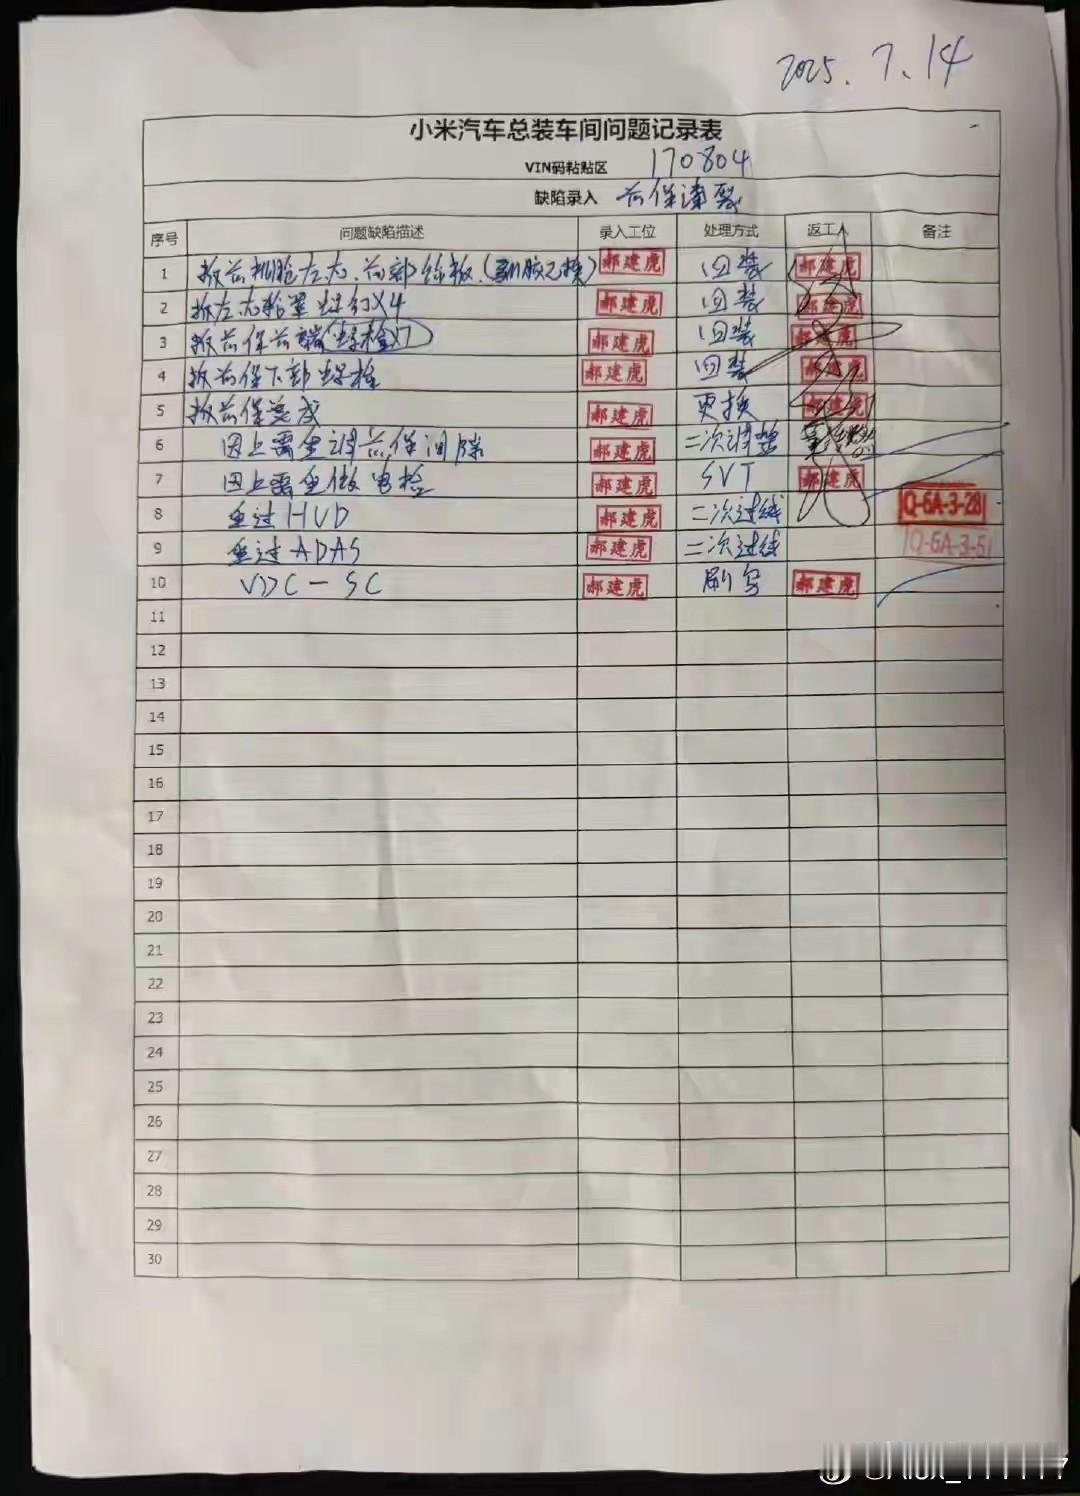 2025.7.14
小米汽车总装车间问题记录表
VIN码粘贴区 170804
缺陷录入 前保漆裂
序号 问题缺陷描述 录入工位 处理方式 返工人 备注
1 拆前机舱左右.前部饰板.( 胶已换) 郝建虎 回装 郝建虎
2 拆左右轮罩螺钉X4 郝建虎 回装 郝建虎
3 拆前保前端(螺栓X7) 郝建虎 回装 郝建虎
4 拆前保下部螺栓 郝建虎 回装 郝建虎
5 拆前保总成 郝建虎 更换 郝建虎
6 因上需重调前保间隙 郝建虎 二次调整
7 因上需重做电检 郝建虎 SVT 郝建虎
8 重过HUD 郝建虎 二次过线 Q-6A-3-28
9 重过ADAS 郝建虎 二次过线 Q-6A-3-5
10 VDC-SC 郝建虎 刷写 郝建虎
11
12
13
14
15
16
17
18
19
20
21
22
23
24
25
26
27
28
29
30